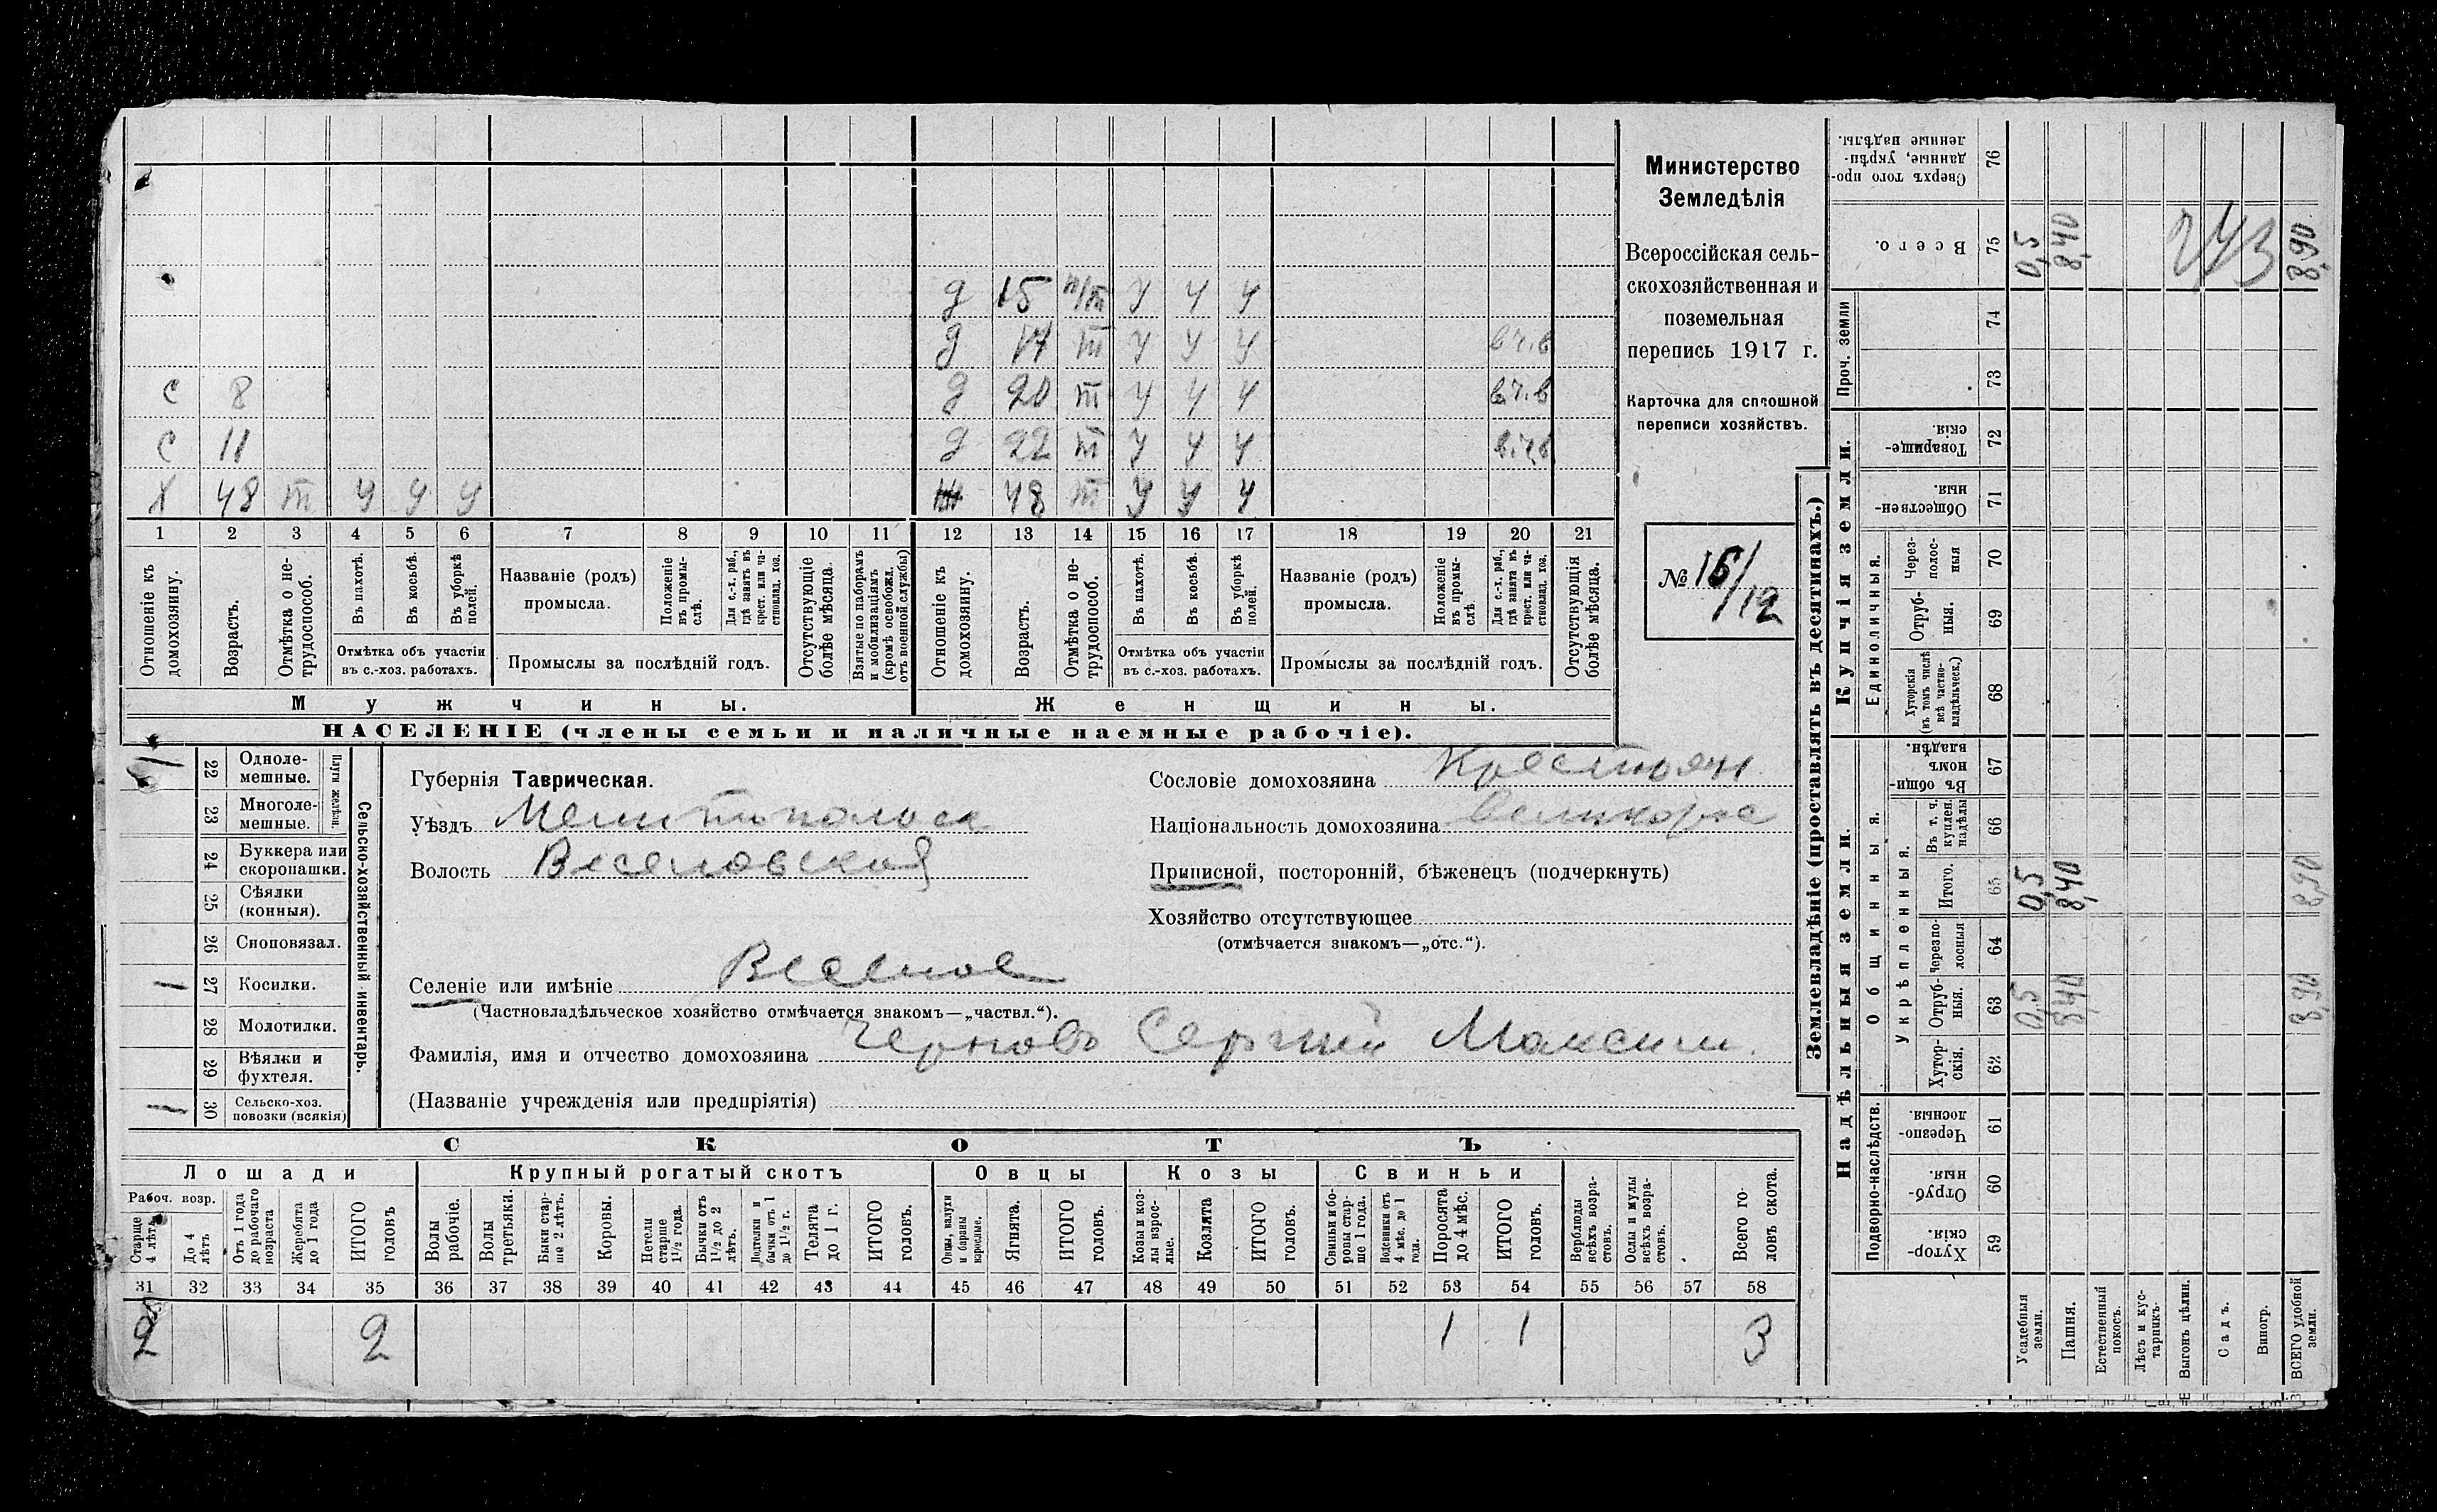 Министерство
Земледѣлія
Всероссійская сель-
скохозяйственная и
поземельная
перепись 1917 г.
Карточка для сплошной
переписи хозяйствъ.
№ 16/12
д 15 н/т У У У
д 17 т У У У в.ч.в
с 8 д 20 т У У У в.ч.в
с 11 д 22 т У У У в.ч.в
Х 48 т У У У 48 т У У У
1 2 3 4 5 6 7 8 9 10 11 12 13 14 15 16 17 18 19 20 21
Отношеніе къ домохозяину.
Возрастъ.
Отмѣтка о не-трудоспособ.
Въ пахотѣ.
Въ косьбѣ.
Въ уборкѣ полей.
Отмѣтка объ участіи
въ с.-хоз. работахъ.
Названіе (родъ)
промысла.
Положеніе въ промы-слѣ.
Для с.-х. раб., гдѣ занятъ въ крест. или ча-стновлад. хоз.
Промыслы за послѣдній годъ.
Отсутствующіе болѣе мѣсяца.
Взятые по наборамъ и мобилизаціямъ (кромѣ освобожд. отъ военной службы)
Отношеніе къ домохозяину.
Возрастъ.
Отмѣтка о не-трудоспособ.
Въ пахотѣ.
Въ косьбѣ.
Въ уборкѣ полей.
Отмѣтка объ участіи
въ с.-хоз. работахъ.
Названіе (родъ)
промысла.
Положеніе въ промы-слѣ
Для с.-х. раб., гдѣ занята въ крест. или ча-стновлад. хоз.
Промыслы за послѣдній годъ.
Отсутствующія болѣе мѣсяца.
Мужчины. Женщины.
НАСЕЛЕНІЕ (члены семьи и наличные наемные рабочіе).
1 22 Одноле-мешные.
23 Многоле-мешные.
Плуги желѣзн.
24 Буккера или скоропашки.
25 Сѣялки (конныя).
26 Сноповязал.
1 27 Косилки.
28 Молотилки.
29 Вѣялки и фухтеля.
1 30 Сельско-хоз. повозки (всякія)
Сельско-хозяйственный инвентарь.
Губернія Таврическая.
Уѣздъ Мелитопольск
Волость Веселовской
Селеніе или имѣніе Веселое
(Частновладѣльческое хозяйство отмѣчается знакомъ—„частвл.“).
Фамилія, имя и отчество домохозяина Черновъ Сергѣй Максим.
(Названіе учрежденія или предпріятія)
Сословіе домохозяина Крестьян
Національность домохозяина Великорос
Приписной, посторонній, бѣженецъ (подчеркнуть)
Хозяйство отсутствующее
(отмѣчается знакомъ—„отс.“).
СКОТЪ
Лошади Крупный рогатый скотъ Овцы Козы Свиньи
Рабоч. возр.
Старше 4 лѣтъ
До 4 лѣтъ
Отъ 1 года до рабочаго возраста
Жеребята до 1 года
ИТОГО головъ
Волы рабочіе.
Волы третьяки.
Быки стар-ше 2 лѣтъ.
Коровы.
Нетели старше 1½ года.
Бычки отъ 1½ до 2 лѣтъ.
Подтелки и бычки отъ 1 до 1½ г.
Телята до 1 г.
ИТОГО головъ.
Овцы, валухи и бараны взрослые.
Ягнята.
ИТОГО головъ.
Козы и коз-лы взрос-лые.
Козлята
ИТОГО головъ.
Свиньи и бо-ровы стар-ше 1 года.
Подсвинки отъ 4 мѣс. до 1 года.
Поросята до 4 мѣс.
ИТОГО головъ.
Верблюды всѣхъ возра-стовъ.
Ослы и мулы всѣхъ возра-стовъ.
Всего го-ловъ скота.
31 32 33 34 35 36 37 38 39 40 41 42 43 44 45 46 47 48 49 50 51 52 53 54 55 56 57 58
2 2 1 1 3
Землевладѣніе (проставлять въ десятинахъ.)
Надѣльныя земли. Купчія земли. Проч. земли
Подворно-наслѣдств.
Общинныя.
Укрѣпленныя.
Единоличныя.
76 Сверхъ того про-данные, укрѣп-ленные надѣлы.
75 Всего. 0,5 8,40 243 8,90
74
73
72 Товарище-скія.
71 Обществен-ныя.
70 Через-полос-ныя
69 Отруб-ныя.
68 Хуторскія (въ томъ числѣ всѣ частно-владѣльческ.)
67 Въ общи-номъ владѣн.
66 Въ т. ч. куплен. надѣлы
65 Итого. 0,5 8,40 8,90
64 Черезпо-лосныя
63 Отруб-ныя. 0,5 8,40 8,90
62 Хутор-скія.
61 Черезпо-лосныя.
60 Отруб-ныя.
59 Хутор-скія.
Усадебныя земли.
Пашня.
Естественный покосъ.
Лѣсъ и кус-тарникъ.
Выгонъ цѣлин.
Садъ.
Виногр.
ВСЕГО удобной земли.